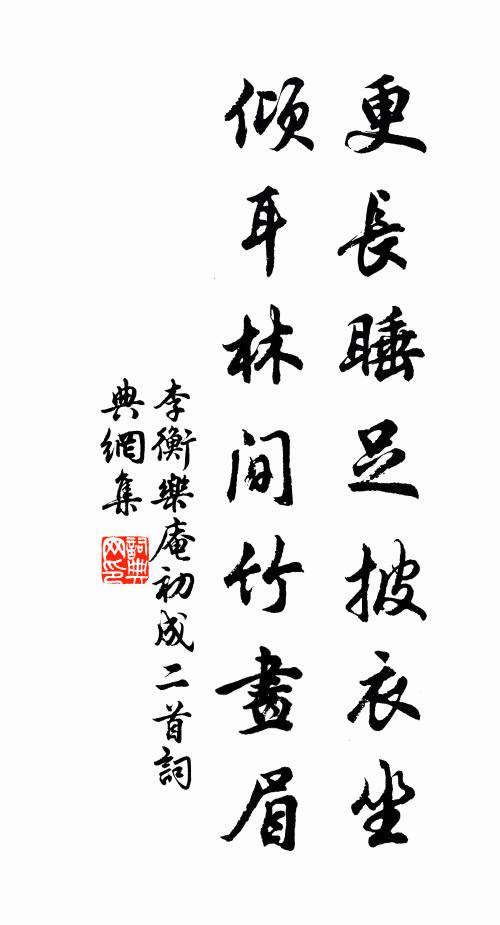 更長睡足披衣坐
傾耳林間竹畫眉
李衡樂庵初成二首詞
典網集
詞典網印